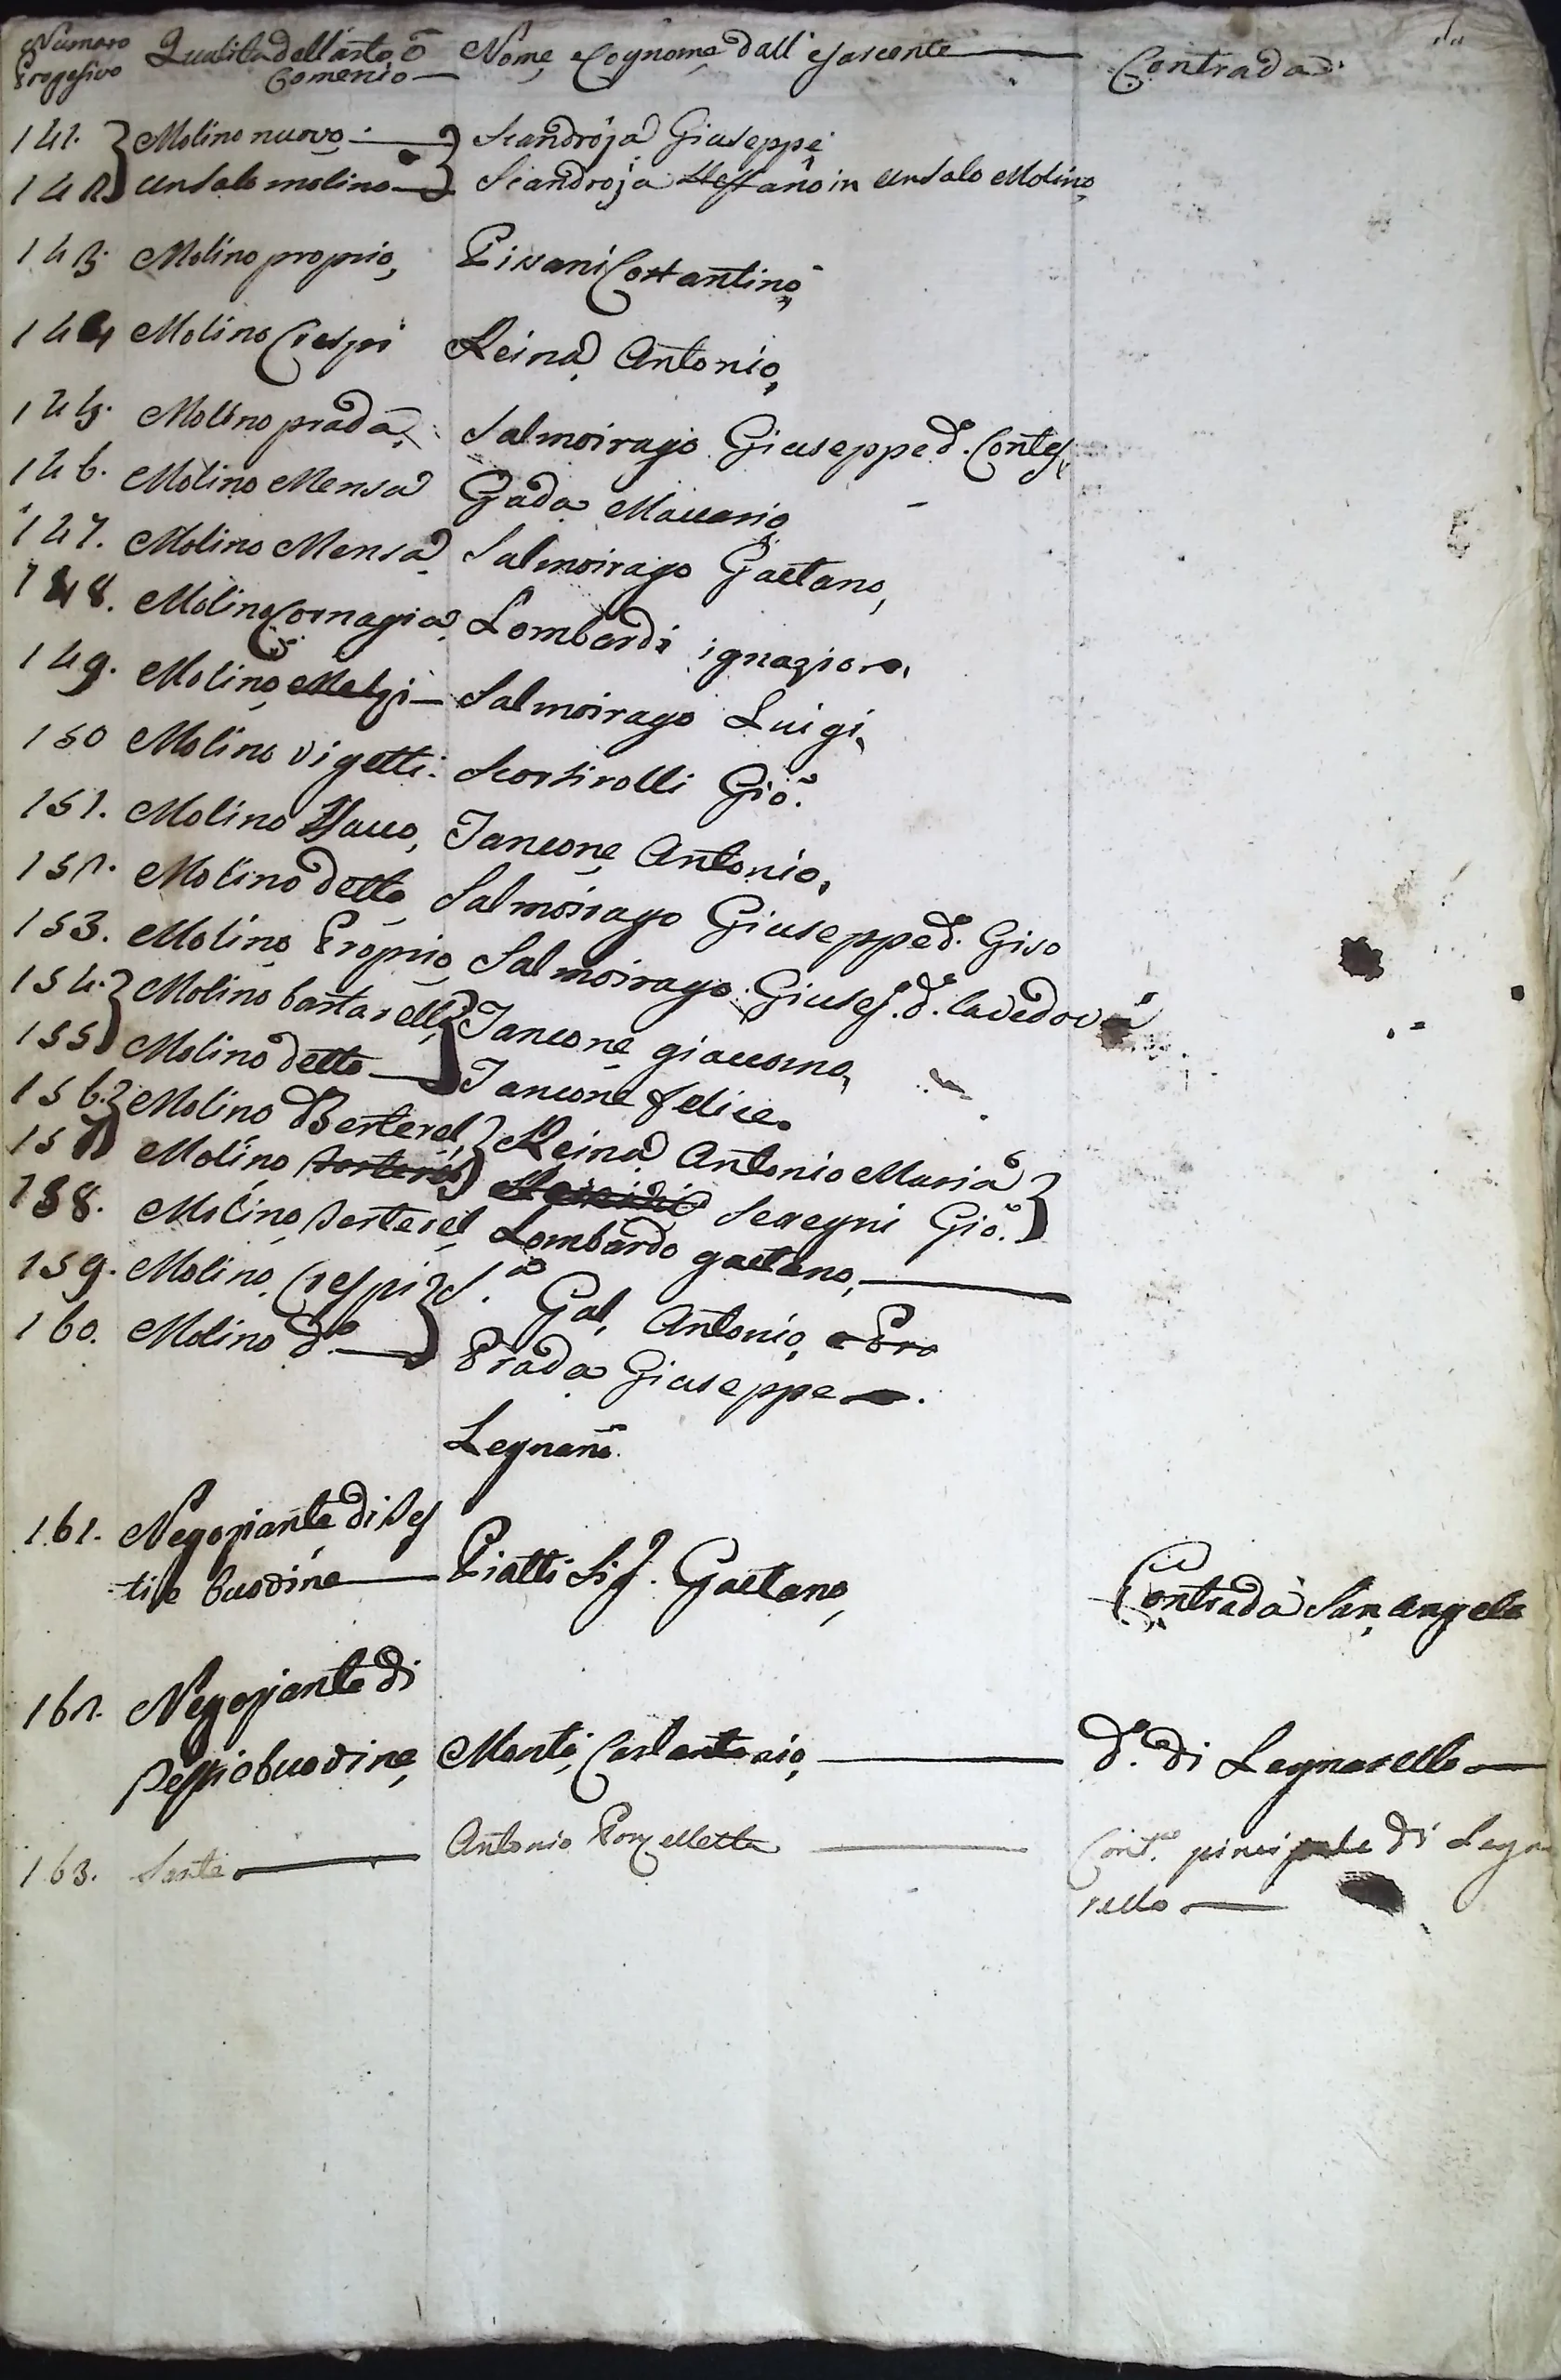 Numaro Progesivo Qualita dell'arto, ō Comenio Nome e Cognome dall'esarcente Contrada
141. Molino nuovo. Scandroja Giuseppe
142 un salo molino Scandroja Steffano in un salo Molino
143. Molino proprio, Pissani Costantino
144 Molino Crespi Reina Antonio,
145. Molino prada. Salmoirago Giuseppe d. Contes,
146. Molino Mensa Gada Maccario
147. Molino Mensa Salmoirago Gaetano,
148. Molino Cornagia Lombardi ignazio
149. Molino Melzi Salmoirago Luigi,
150 Molino vigetti. Scortirolli Gio.
151. Molino Isacco, Jancone Antonio,
152. Molino detto Salmoirago Giuseppe d. Giso
153. Molino Proprio Salmoirago Giusep. d. la vedova
154. Molino bartarelli Jancone giaccomo,
155 Molino detto Jancone felice.
156. Molino Berterel, Reina Antonio Maria
157 Molino Seregni Gio.
158. Molino berterel Lombardo gaetano,
159. Molino Crespi S. Gal, Antonio,
160. Molino d.o Prada Giuseppe
Legnano.
161. Negoziante di pes
ti e buodine Piatti Sig. Gaetano, Contrada San, angelo
162. Negoziante di
pessi e buodine, Monti, Carlantonio, d. di Legnarello
163. Sarto Antonio Porzelletta Cont. principale di Legna
rello